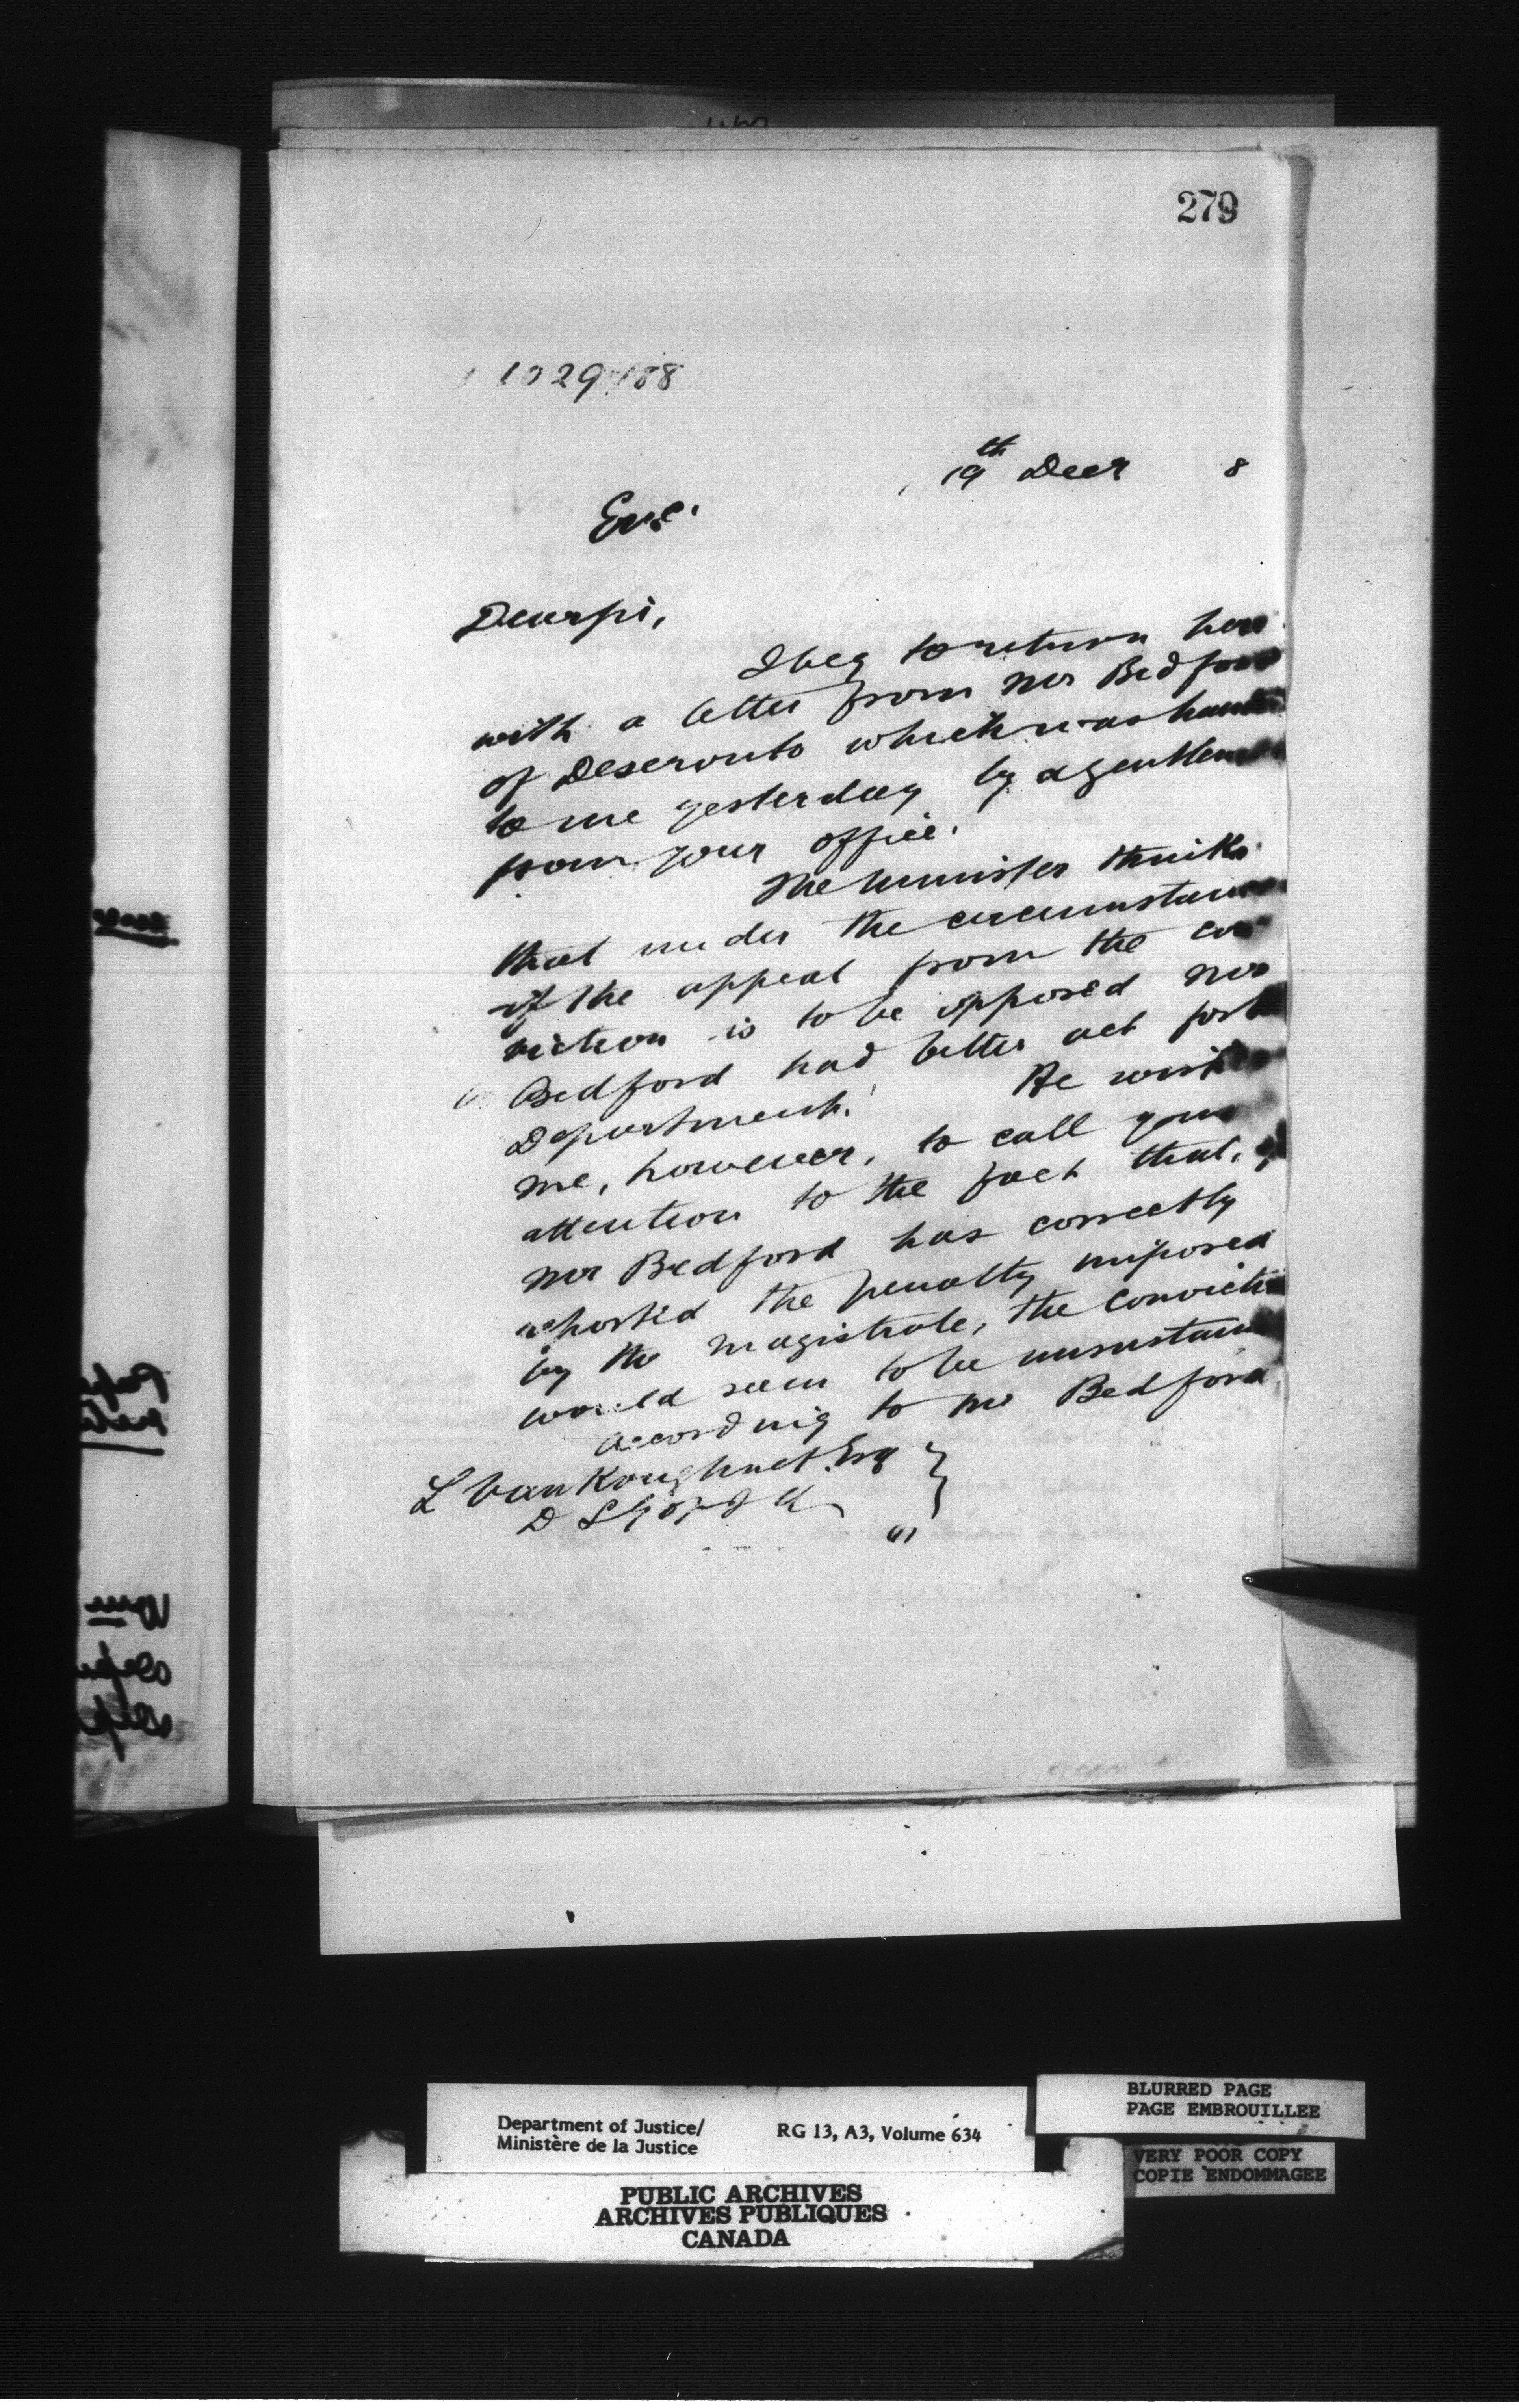 279
1029/88
19th Decr 8
Enc.
Dear Sir,
I beg to return here
with a letter from Mr Bedford
of Deseronto which was handed
to me yesterday by a gentleman
from your office.
The Minister thinks
that under the circumstances
if the appeal from the con
viction is to be opposed Mr
Bedford had better act for the
Department. He wishes
me, however, to call your
attention to the fact that, if
Mr Bedford has correctly
reported the penalty imposed
by the magistrate, the conviction
would seem to be unsustain
According to Mr Bedford
L VanKoughnet Esq
D S G of I A
Department of Justice/
Ministère de la Justice
RG 13, A3, Volume 634
BLURRED PAGE
PAGE EMBROUILLEE
VERY POOR COPY
COPIE ENDOMMAGEE
PUBLIC ARCHIVES
ARCHIVES PUBLIQUES
CANADA